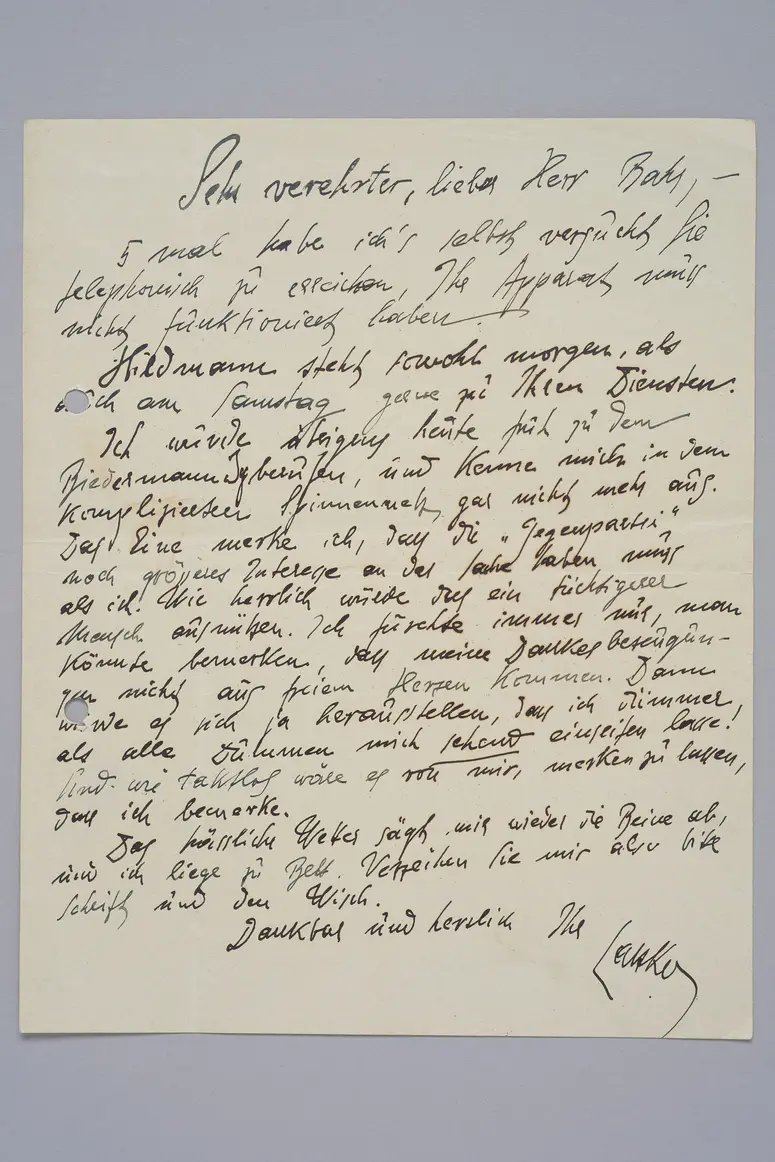 Sehr verehrter, lieber Herr Bahr, —
5 mal habe ich's selbst versucht Sie
telephonisch zu erreichen, Ihr Apparat muss
nicht funktioniert haben.
Hildmann steht sowohl morgen, als
auch am Samstag gerne zu Ihren Diensten.
Ich würde übrigens heute früh zu dem
Biedermann berufen, und kenne mich in dem
komplizierten Spinnennetz gar nicht mehr aus.
Das Eine merke ich, dass die „Gegenpartei“
noch grösseres Interesse an der Sache haben muss
als ich! Wie herrlich würde das ein tüchtigerer
Mensch ausnützen. Ich fürchte immer nur, man
könnte bemerken, dass meine Dankesbezeugun-
gen nicht aus freiem Herzen kommen. Dann
würde es sich ja herausstellen, dass ich dümmer,
als alle Dummen mich einseifen lasse!
Und wie taktlos wäre es von mir, merken zu lassen,
dass ich bemerke.
Das hässliche Wetter sägt mir wieder die Beine ab,
und ich liege zu Bett. Verzeihen Sie mir also bitte
Schrift und den Wisch.
Dankbar und herzlich Ihr